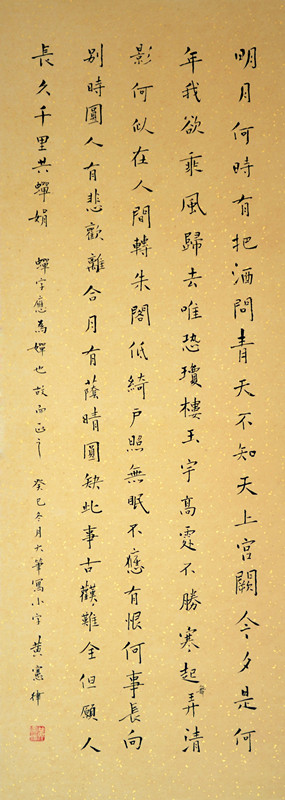 明月何時有把酒問青天不知天上宮闕今夕是何
年我欲乘風歸去唯恐瓊樓玉宇高處不勝寒起弄清
影何似在人間轉朱閣低綺戶照無眠不應有恨何事長向
別時圓人有悲歡離合月有蔭晴圓缺此事古難全但願人
長久千里共蟬娟 蟬字應為嬋也故而正之 癸巳冬月大筆寫小字 黃憲律